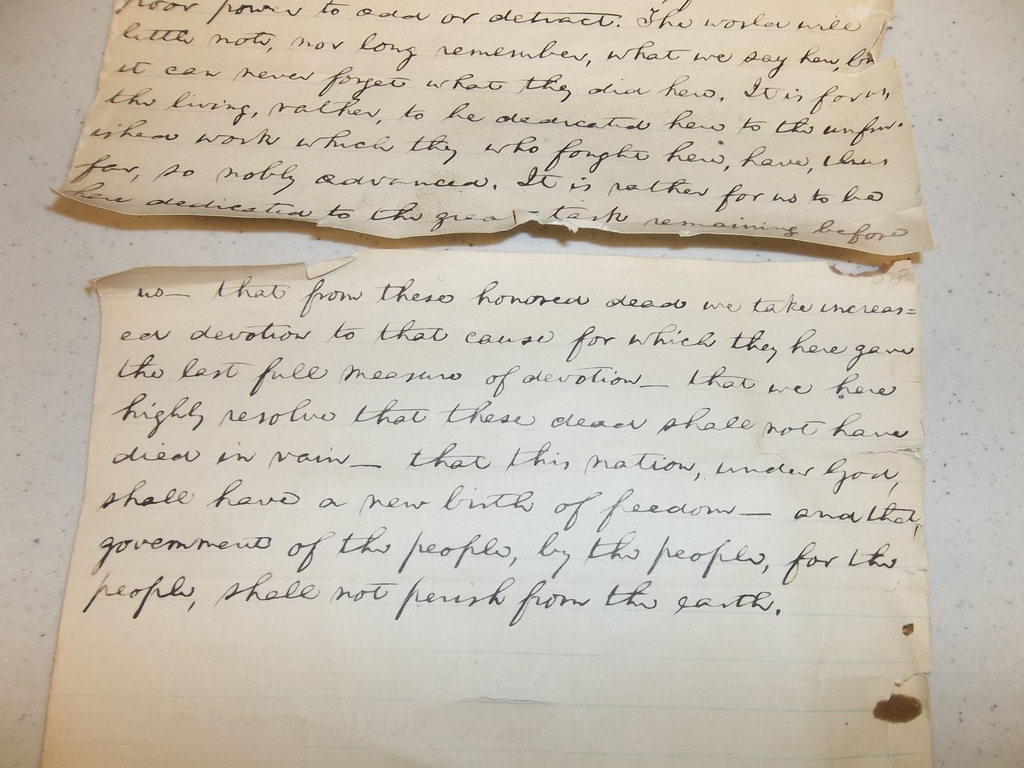 poor power to add or detract. The world will
little note, nor long remember, what we say here, but
it can never forget what they did here. It is for us,
the living, rather, to be dedicated here to the unfin-
ished work which they who fought here, have, thus
far, so nobly advanced. It is rather for us to be
here dedicated to the great task remaining before
us— that from these honored dead we take increas=
ed devotion to that cause for which they here gave
the last full measure of devotion— that we here
highly resolve that these dead shall not have
died in vain— that this nation, under God,
shall have a new birth of freedom— and that,
government of the people, by the people, for the
people, shall not perish from the earth.